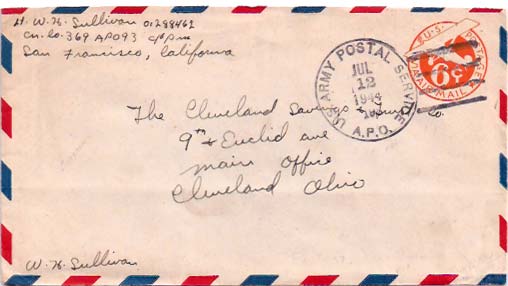 Lt. W. H. Sullivan 01288462
Cn. Co. 369 APO 93 c/o p.m
San Francisco, California
U.S. ARMY POSTAL SERVICE
JUL
12
1944
A.P.O.
U.S. POSTAGE
6¢
VIA AIR MAIL
The Cleveland Savings & Co.
9th & Euclid ave
main Office
Cleveland Ohio
W. H. Sullivan